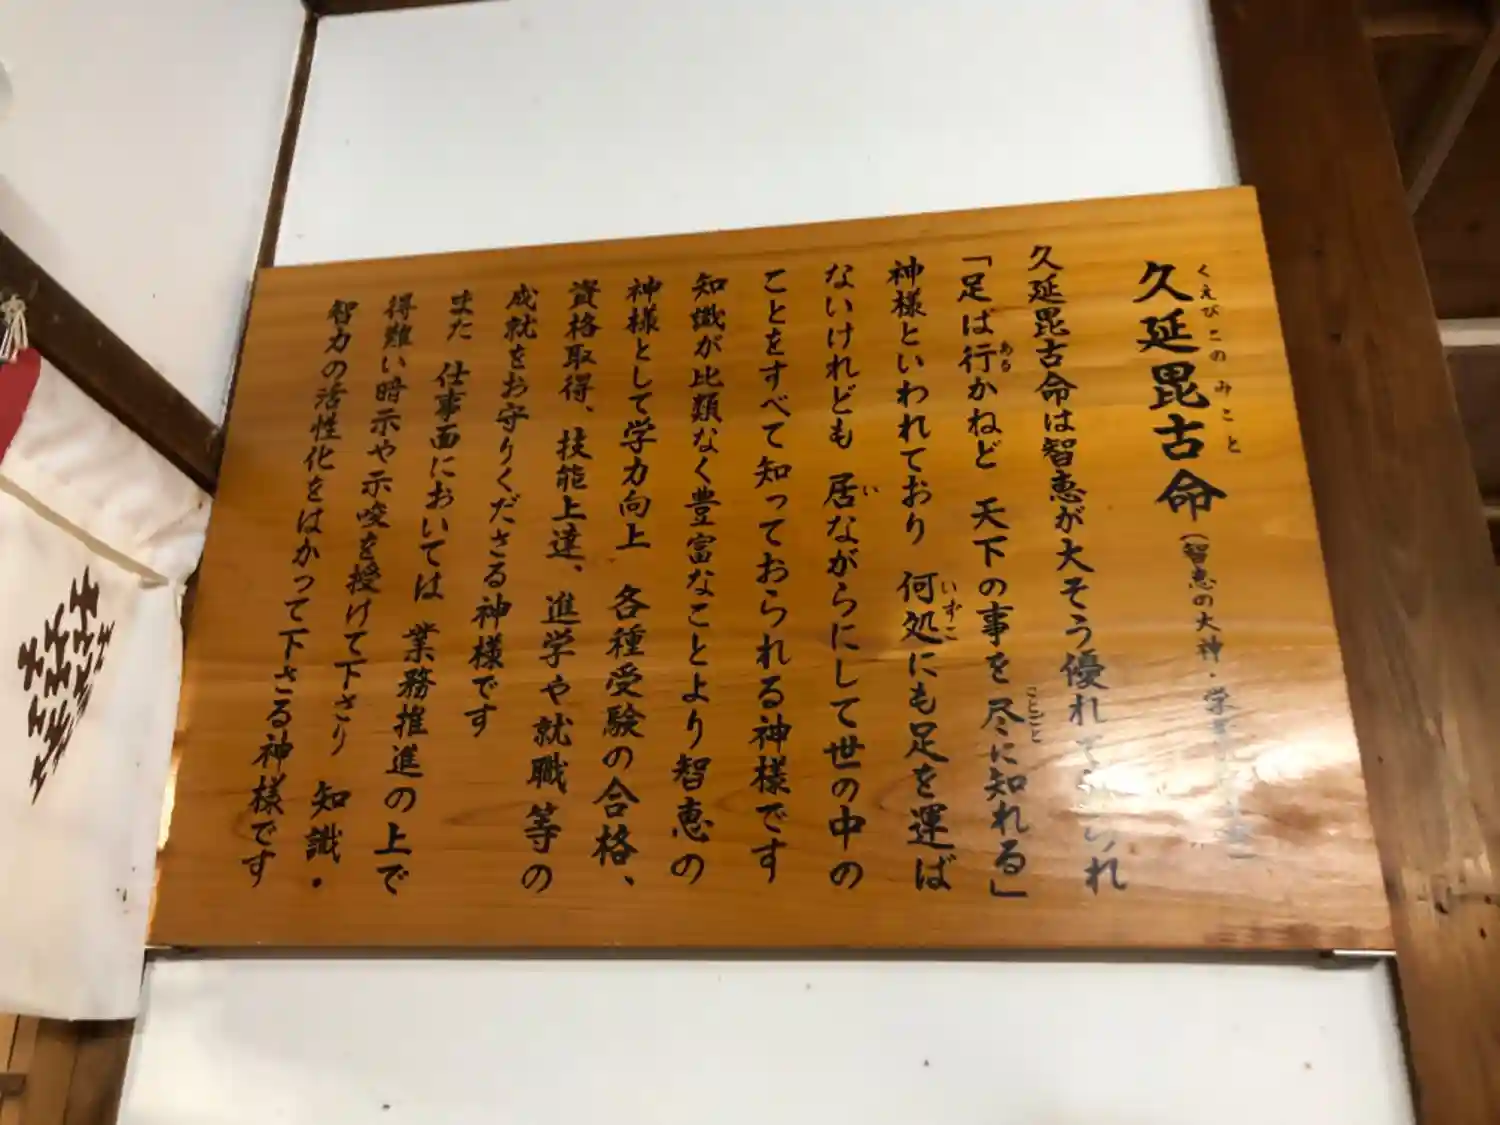 久延毘古命(智恵の大神・
くえびこのみこと
久延毘古命は智恵が大そう優れて
「足ば行かねど 天下の事を 尽に知れる」
ある
ことごと
神様といわれており 何処にも足を運ば
いずこ
ないけれども 居ながらにして世の中の
い
ことをすべて知っておられる神様です
知識が比類なく豊富なことより智恵の
神様として学力向上 各種受験の合格、
資格取得、技能上達、進学や就職等の
成就をお守りくださる神様です
また 仕事面においては 業務推進の上で
得難い暗示や示唆を授けて下さり 知識・
智力の活性化をはかって下さる神様です